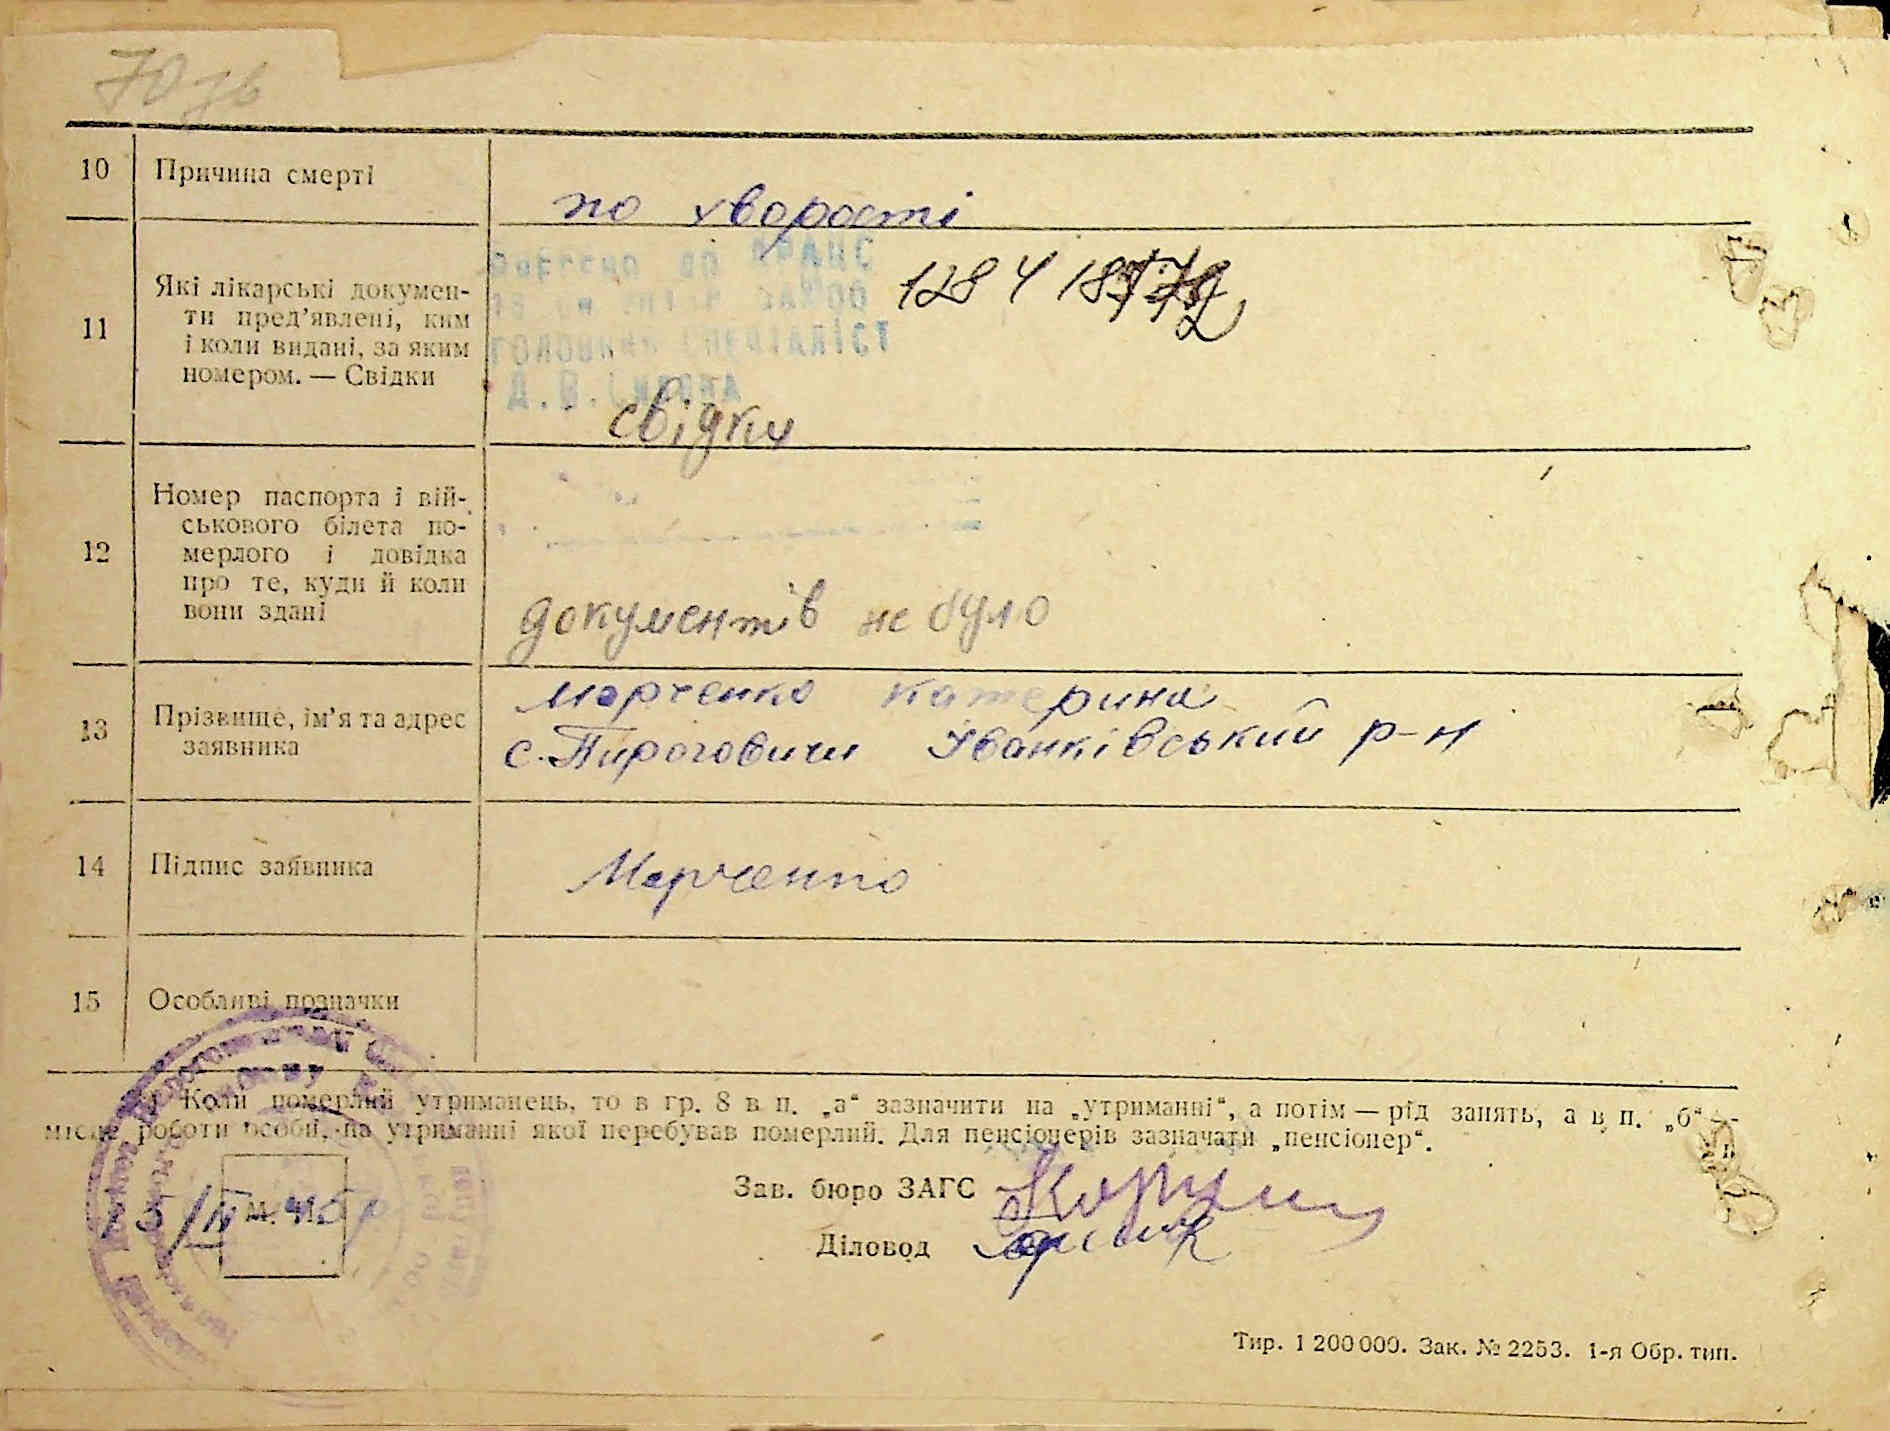 70 зв
10
Причина смерті
по хворості
11
Які лікарські докумен-
ти пред’явлені, ким
і коли видані, за яким
номером. — Свідки
до ДРАЦС
ГОЛОВНИЙ СПЕЦІАЛІСТ
128 4 18
свідки
12
Номер паспорта і вій-
ськового білета по-
мерлого і довідка
про те, куди й коли
вони здані
документів не було
13
Прізвище, ім’я та адрес
заявника
Марченко Катерина
с. Пироговичи Іванківський р-н
14
Підпис заявника
Марченко
15
Особливі позначки
Коли померлий утриманець, то в гр. 8 в п. „а“ зазначити на „утриманні“, а потім — рід занять, а в п. „б“ —
місце роботи особи, на утриманні якої перебував померлий. Для пенсіонерів зазначати „пенсіонер“.
Зав. бюро ЗАГС
М. П.
Діловод
Тир. 1 200 000. Зак. № 2253. 1-я Обр. тип.